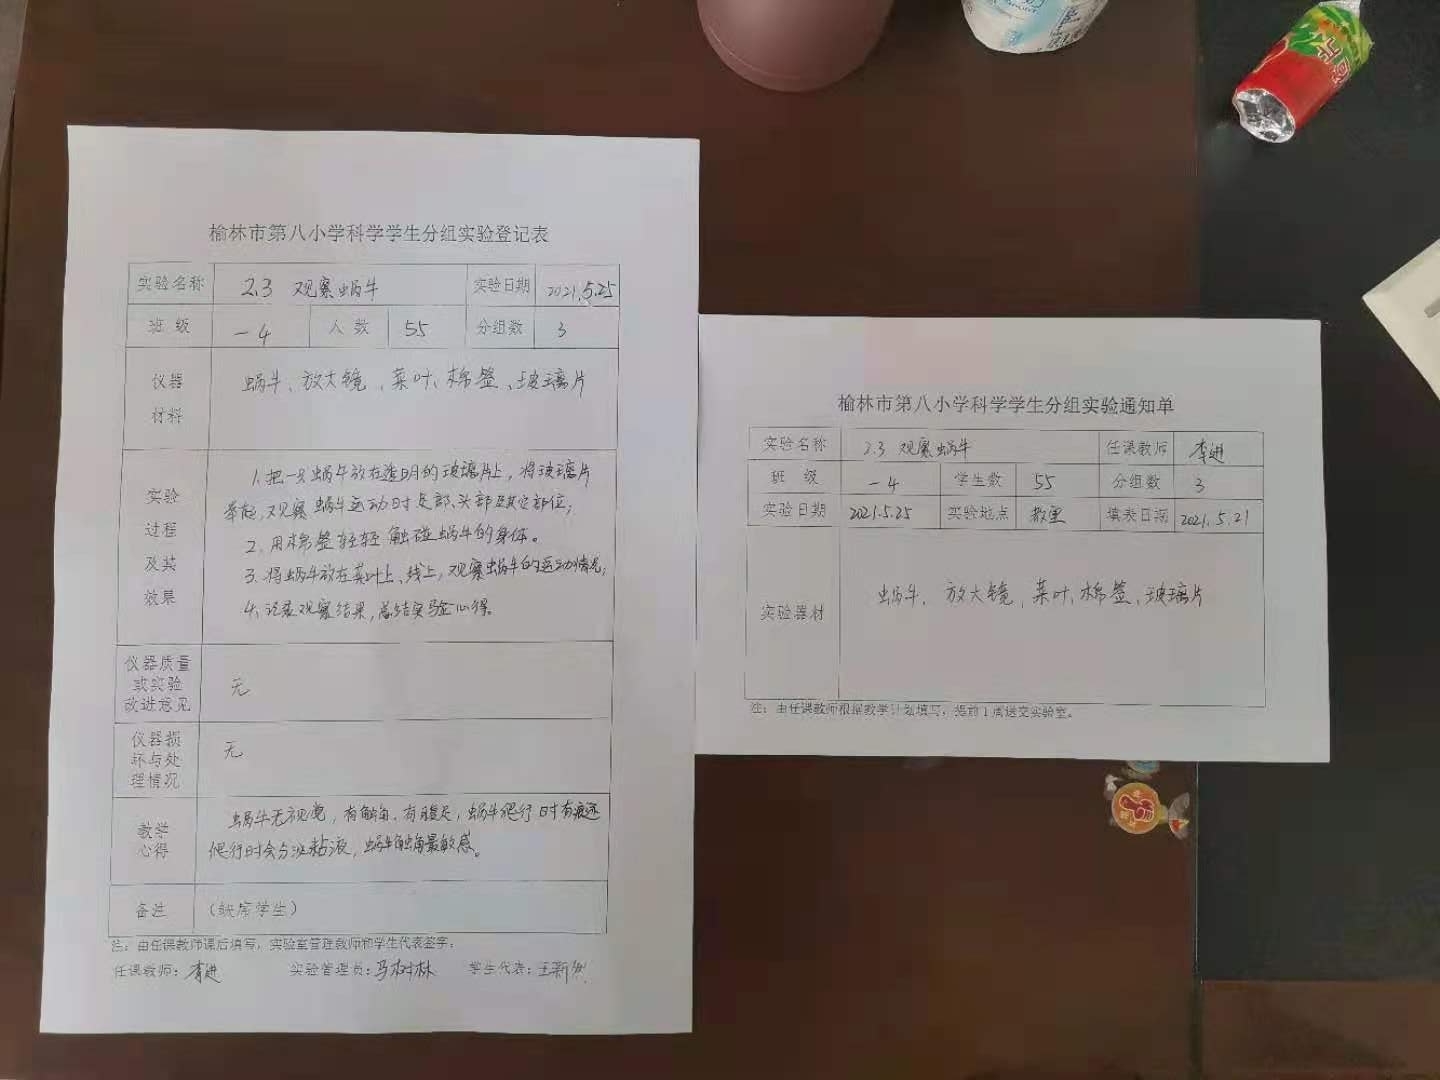 榆林市第八小学科学学生分组实验登记表
实验名称 2.3 观察蜗牛 实验日期 2021.5.25
班 级 一4 人 数 55 分组数 3
仪器
材料
蜗牛、放大镜、菜叶、棉签、玻璃片
实验
过程
及其
效果
1.把一只蜗牛放在透明的玻璃片上，将玻璃片
举起，观察蜗牛运动时足部、头部及其它部位；
2、用棉签轻轻触碰蜗牛的身体。
3、将蜗牛放在菜叶上、线上，观察蜗牛的运动情况；
4、记录观察结果，总结实验心得。
仪器质量
或实验
改进意见
无
仪器损
坏与处
理情况
无
教学
心得
蜗牛无视觉，有触角、有腹足，蜗牛爬行时有痕迹
爬行时会分泌粘液，蜗牛触角最敏感。
备注 （缺席学生）
注：由任课教师课后填写，实验室管理教师和学生代表签字。
任课教师：李进 实验管理员：马树林 学生代表：王新
榆林市第八小学科学学生分组实验通知单
实验名称 2.3 观察蜗牛 任课教师 李进
班 级 一4 学生数 55 分组数 3
实验日期 2021.5.25 实验地点 教室 填表日期 2021.5.21
实验器材 蜗牛、放大镜、菜叶、棉签、玻璃片
注：由任课教师根据教学计划填写，提前1周送交实验室。